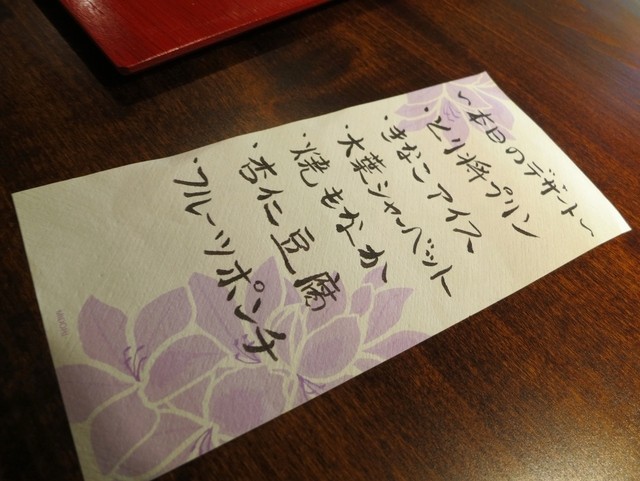 〜本日のデザート〜
・とり将プリン
・きなこアイス
・大葉シャーベット
・焼もなか
・杏仁豆腐
・フルーツポンチ